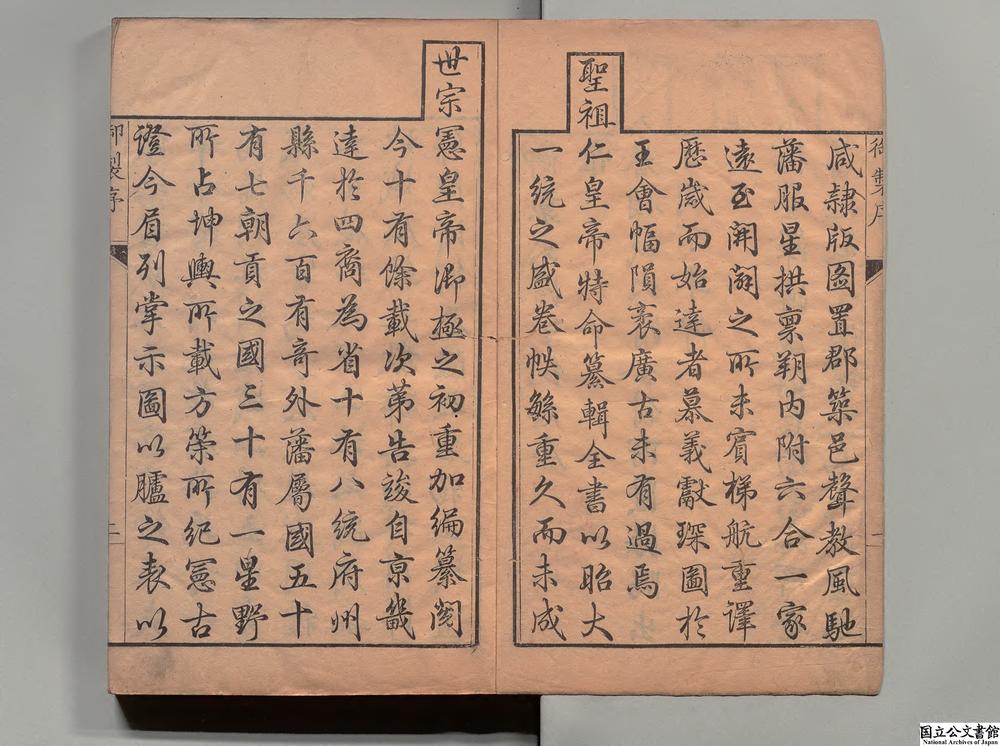 御製序
一
咸隷版圖置郡築邑聲教風馳
藩服星拱禀朔内附六合一家
遠至開闢之所未賓梯航重譯
歷歲而始達者慕義獻琛圖於
王會幅隕袤廣古未有過焉
聖祖仁皇帝特命纂輯全書以昭大
一統之盛卷帙繇重久而未成
世宗憲皇帝御極之初重加編纂閱
今十有餘載次第告竣自京畿
達於四裔為省十有八統府州
縣千六百有奇外藩屬國五十
有七朝貢之國三十有一星野
所占坤輿所載方策所紀憲古
證今眉列掌示圖以臚之表以
御製序
二
国立公文書館
National Archives of Japan